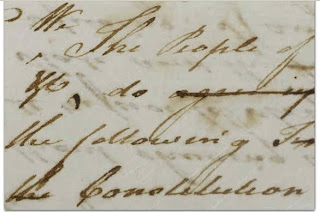 We The People of
do agree in
the following
the Constitution